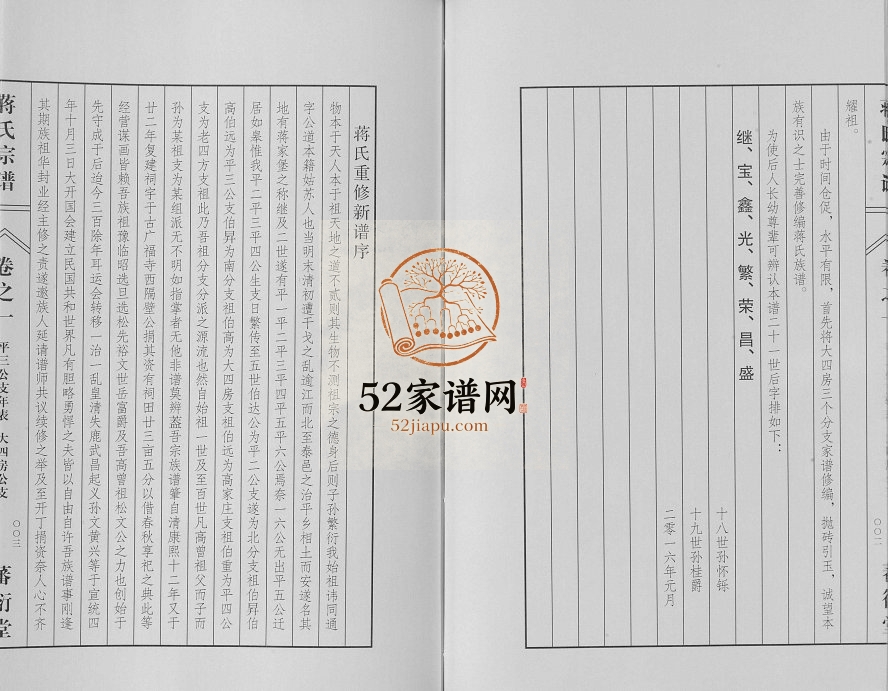 耀祖。
由于时间仓促，水平有限，首先将大四房三个分支家谱修编，抛砖引玉，诚望本
族有识之士完善修编蒋氏族谱。
为使后人长幼尊辈可辨认本谱二十一世后字排如下：
继、宝、鑫、光、繁、荣、昌、盛
十八世孙怀铄
十九世孙桂爵
二零一六年元月
〇〇二
蒋氏重修新谱序
物本于天人本于祖天地之道不贰则其生物不测祖宗之德身后则子孙繁衍我始祖讳同通
字公道本籍姑苏人也当明末清初遭干戈之乱逾江而北至泰邑之治平乡相土而安遂名其
地有蒋家堡之称继及二世遂有平一平二平三平四平五平六公焉奈一六公无出平五公迁
居如皋惟我平二平三平四公生支日繁传至五世伯达公为平二公支遂为北分支祖伯昇伯
高伯远为平三公支伯昇为南分支祖伯高为大四房支祖伯远为高家庄支祖伯重为平四公
支为老四方支祖此乃吾祖分支分派之源流也然自始祖一世及至百世凡高曾祖父而子而
孙为某祖支为某组派无不明如指掌者无他非谱莫辨蓋吾宗族谱肇自清康熙十二年又于
廿二年复建祠宇于古广福寺西隔壁公捐其资有祠田廿三亩五分以借春秋享祀之典此等
经营谋画皆赖吾族祖豫临昭选旦选松先裕文世岳富爵及吾高曾祖松文公之力也创始于
先守成于后迨今三百馀年耳运会转移一治一乱皇清失鹿武昌起义孙文黄兴等于宣统四
年十月三日大开国会建立民国共和世界凡有胆略勇悍之夫皆以自由自许吾族谱事刚逢
其期族祖华封业经主修之责遂邀族人延请谱师共议续修之举及至开丁捐资奈人心不齐
蒋氏宗谱
卷之一
平三公支年表
大四房公支
〇〇三
蕃衍堂
52家谱网
52jiapu.com